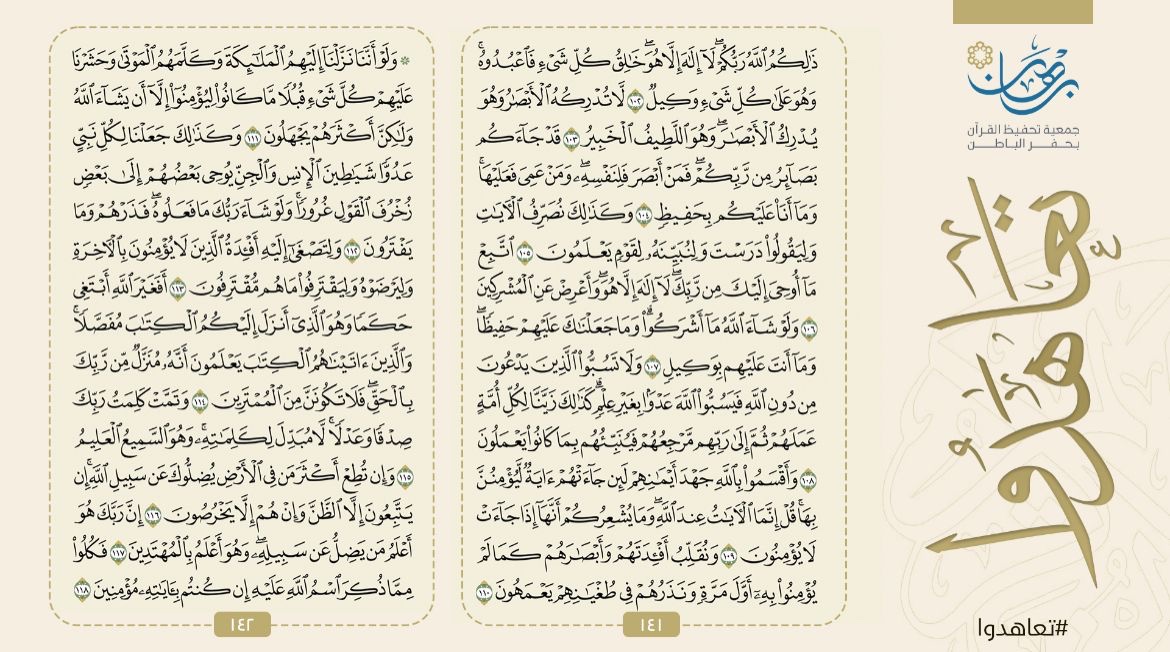 ذَٰلِكُمُ ٱللَّهُ رَبُّكُمْ ۖ لَآ إِلَٰهَ إِلَّا هُوَ ۖ خَٰلِقُ كُلِّ شَىْءٍ فَٱعْبُدُوهُ ۚ
وَهُوَ عَلَىٰ كُلِّ شَىْءٍ وَكِيلٌ ١٠٢ لَّا تُدْرِكُهُ ٱلْأَبْصَٰرُ وَهُوَ
يُدْرِكُ ٱلْأَبْصَٰرَ ۖ وَهُوَ ٱللَّطِيفُ ٱلْخَبِيرُ ١٠٣ قَدْ جَآءَكُم
بَصَآئِرُ مِن رَّبِّكُمْ ۖ فَمَنْ أَبْصَرَ فَلِنَفْسِهِۦ ۖ وَمَنْ عَمِىَ فَعَلَيْهَا ۚ
وَمَآ أَنَا۠ عَلَيْكُم بِحَفِيظٍ ١٠٤ وَكَذَٰلِكَ نُصَرِّفُ ٱلْأٓيَٰتِ
وَلِيَقُولُوا۟ دَرَسْتَ وَلِنُبَيِّنَهُۥ لِقَوْمٍ يَعْلَمُونَ ١٠٥ ٱتَّبِعْ
مَآ أُوحِىَ إِلَيْكَ مِن رَّبِّكَ ۖ لَآ إِلَٰهَ إِلَّا هُوَ ۖ وَأَعْرِضْ عَنِ ٱلْمُشْرِكِينَ
١٠٦ وَلَوْ شَآءَ ٱللَّهُ مَآ أَشْرَكُوا۟ ۗ وَمَا جَعَلْنَٰكَ عَلَيْهِمْ حَفِيظًا ۖ
وَمَآ أَنتَ عَلَيْهِم بِوَكِيلٍ ١٠٧ وَلَا تَسُبُّوا۟ ٱلَّذِينَ يَدْعُونَ
مِن دُونِ ٱللَّهِ فَيَسُبُّوا۟ ٱللَّهَ عَدْوًۢا بِغَيْرِ عِلْمٍ ۗ كَذَٰلِكَ زَيَّنَّا لِكُلِّ أُمَّةٍ
عَمَلَهُمْ ثُمَّ إِلَىٰ رَبِّهِم مَّرْجِعُهُمْ فَيُنَبِّئُهُم بِمَا كَانُوا۟ يَعْمَلُونَ
١٠٨ وَأَقْسَمُوا۟ بِٱللَّهِ جَهْدَ أَيْمَٰنِهِمْ لَئِن جَآءَتْهُمْ ءَايَةٌ لَّيُؤْمِنُنَّ
بِهَا ۚ قُلْ إِنَّمَا ٱلْأٓيَٰتُ عِندَ ٱللَّهِ ۖ وَمَا يُشْعِرُكُمْ أَنَّهَآ إِذَا جَآءَتْ
لَا يُؤْمِنُونَ ١٠٩ وَنُقَلِّبُ أَفْـِٔدَتَهُمْ وَأَبْصَٰرَهُمْ كَمَا لَمْ
يُؤْمِنُوا۟ بِهِۦٓ أَوَّلَ مَرَّةٍ وَنَذَرُهُمْ فِى طُغْيَٰنِهِمْ يَعْمَهُونَ ١١٠
١٤١
۞ وَلَوْ أَنَّنَا نَزَّلْنَآ إِلَيْهِمُ ٱلْمَلَٰٓئِكَةَ وَكَلَّمَهُمُ ٱلْمَوْتَىٰ وَحَشَرْنَا
عَلَيْهِمْ كُلَّ شَىْءٍ قُبُلًا مَّا كَانُوا۟ لِيُؤْمِنُوٓا۟ إِلَّآ أَن يَشَآءَ ٱللَّهُ
وَلَٰكِنَّ أَكْثَرَهُمْ يَجْهَلُونَ ١١١ وَكَذَٰلِكَ جَعَلْنَا لِكُلِّ نَبِىٍّ
عَدُوًّا شَيَٰطِينَ ٱلْإِنسِ وَٱلْجِنِّ يُوحِى بَعْضُهُمْ إِلَىٰ بَعْضٍ
زُخْرُفَ ٱلْقَوْلِ غُرُورًا ۚ وَلَوْ شَآءَ رَبُّكَ مَا فَعَلُوهُ ۖ فَذَرْهُمْ وَمَا
يَفْتَرُونَ ١١٢ وَلِتَصْغَىٰٓ إِلَيْهِ أَفْـِٔدَةُ ٱلَّذِينَ لَا يُؤْمِنُونَ بِٱلْأٓخِرَةِ
وَلِيَرْضَوْهُ وَلِيَقْتَرِفُوا۟ مَا هُم مُّقْتَرِفُونَ ١١٣ أَفَغَيْرَ ٱللَّهِ أَبْتَغِى
حَكَمًا وَهُوَ ٱلَّذِىٓ أَنزَلَ إِلَيْكُمُ ٱلْكِتَٰبَ مُفَصَّلًا ۚ
وَٱلَّذِينَ ءَاتَيْنَٰهُمُ ٱلْكِتَٰبَ يَعْلَمُونَ أَنَّهُۥ مُنَزَّلٌ مِّن رَّبِّكَ
بِٱلْحَقِّ ۖ فَلَا تَكُونَنَّ مِنَ ٱلْمُمْتَرِينَ ١١٤ وَتَمَّتْ كَلِمَتُ رَبِّكَ
صِدْقًا وَعَدْلًا ۚ لَّا مُبَدِّلَ لِكَلِمَٰتِهِۦ ۚ وَهُوَ ٱلسَّمِيعُ ٱلْعَلِيمُ
١١٥ وَإِن تُطِعْ أَكْثَرَ مَن فِى ٱلْأَرْضِ يُضِلُّوكَ عَن سَبِيلِ ٱللَّهِ ۚ إِن
يَتَّبِعُونَ إِلَّا ٱلظَّنَّ وَإِنْ هُمْ إِلَّا يَخْرُصُونَ ١١٦ إِنَّ رَبَّكَ هُوَ
أَعْلَمُ مَن يَضِلُّ عَن سَبِيلِهِۦ ۖ وَهُوَ أَعْلَمُ بِٱلْمُهْتَدِينَ ١١٧ فَكُلُوا۟
مِمَّا ذُكِرَ ٱسْمُ ٱللَّهِ عَلَيْهِ إِن كُنتُم بِـَٔايَٰتِهِۦ مُؤْمِنِينَ ١١٨
١٤٢
برهان
جمعية تحفيظ القرآن
بحفر الباطن
تعاهدوا
#تعاهدوا